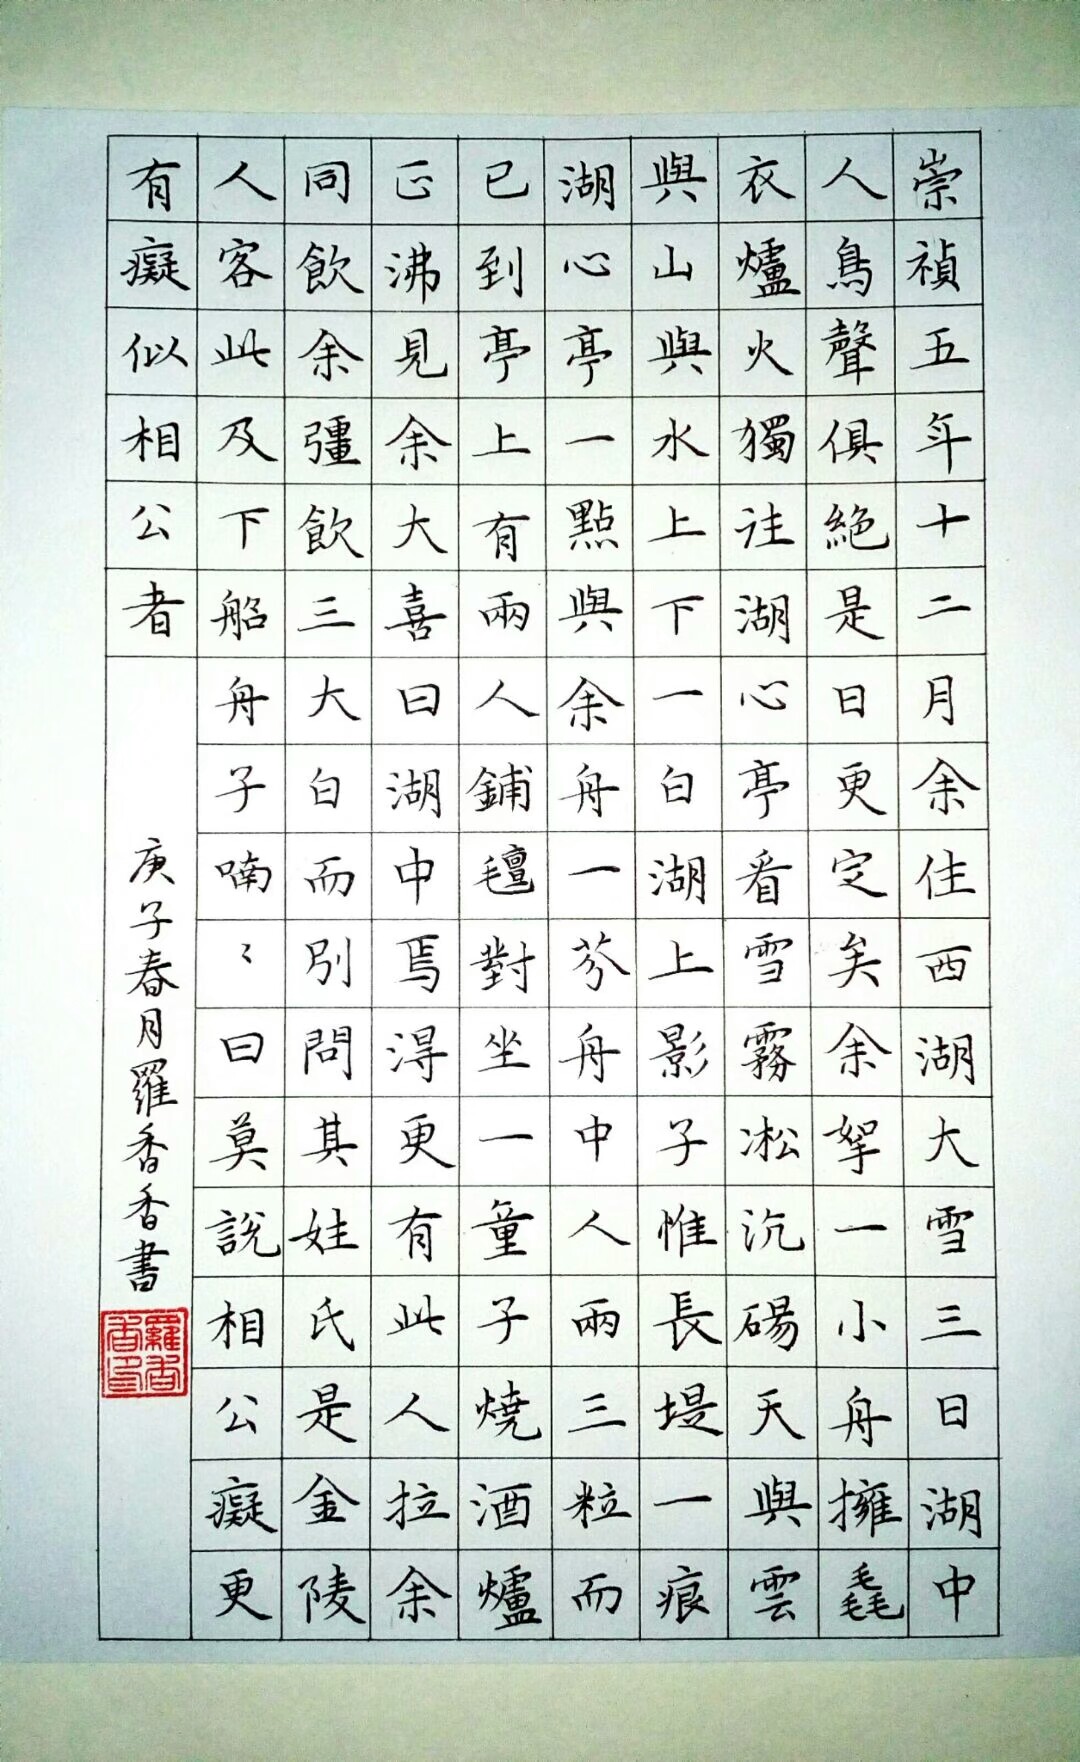 崇禎五年十二月余住西湖大雪三日湖中
人鳥聲俱絶是日更定矣余拏一小舟擁毳
衣爐火獨往湖心亭看雪霧凇沆碭天與雲
與山與水上下一白湖上影子惟長堤一痕
湖心亭一點與余舟一芥舟中人兩三粒而
已到亭上有兩人鋪氊對坐一童子燒酒爐
正沸見余大喜曰湖中焉得更有此人拉余
同飲余彊飲三大白而別問其姓氏是金陵
人客此及下船舟子喃〻曰莫說相公癡更
有癡似相公者
庚子春月羅香香書
羅香香印